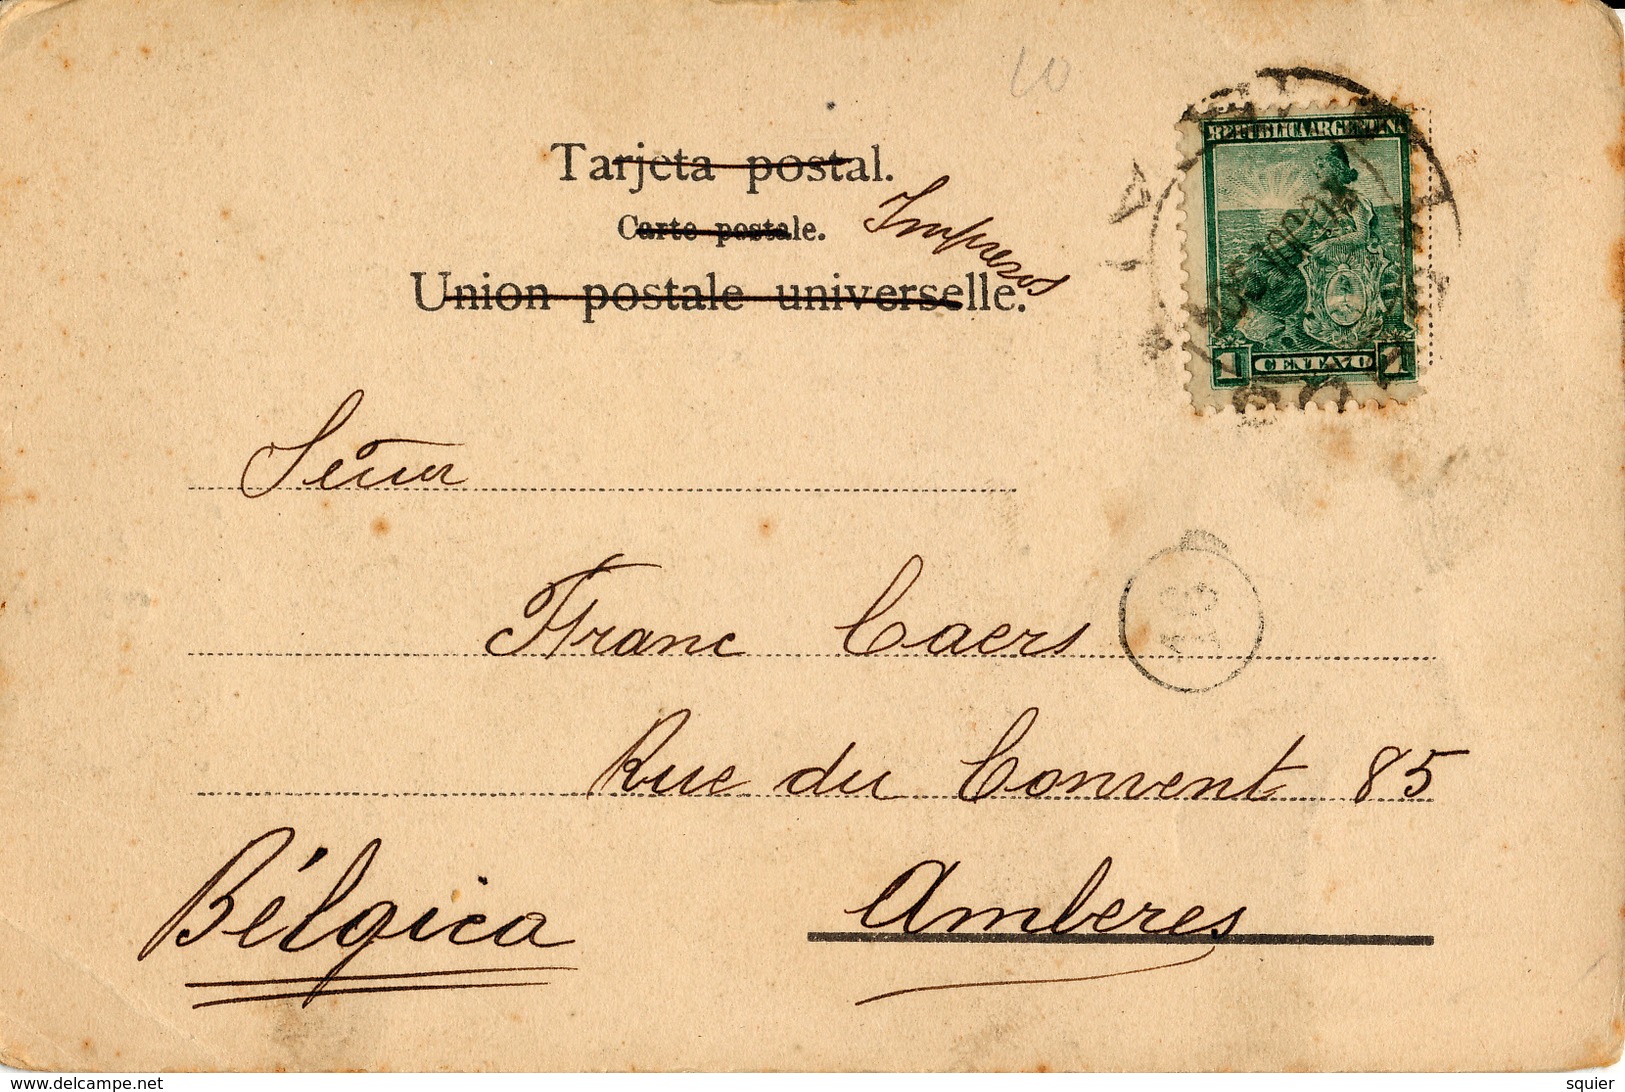 10
Tarjeta postal.
Carte postale.
Impresos
Union postale universelle.
REPUBLICA ARGENTINA
1 CENTAVO 1
Señor
Franc Caers
Rue du Convent 85
Bélgica
Amberes
www.delcampe.net
squier